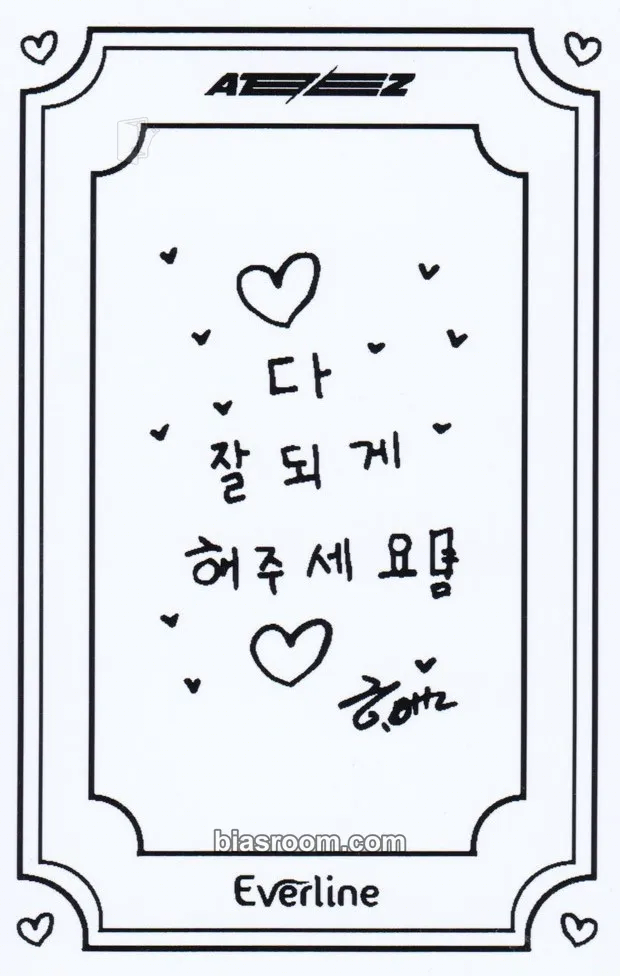 ATEEZ
다
잘 되게
해주세요
biasroom.com
Everline